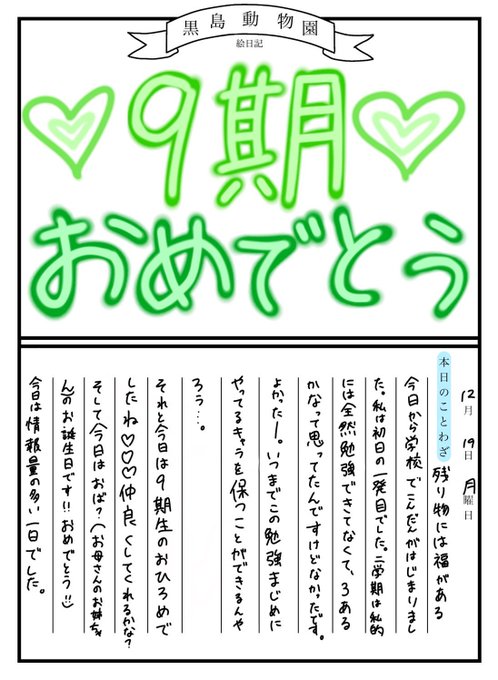 黒島動物園
絵日記
9期
おめでとう
12月19日月曜日
本日のことわざ 残り物には福がある
今日から学校でこんだんがはじまりまし
た。私は初日の一発目でした。二学期は私的
には全然勉強できてなくて、3ある
かなって思ってたんですけどなかったです。
よかったー。いつまでこの勉強まじめに
やってるキャラを保つことができるんや
ろう…。
それと今日は9期生のおひろめで
したね♡♡♡仲良くしてくれるかな?
そして今日はおば?(お母さんのお姉ちゃ
ん)のお誕生日です!!おめでとう!!
今日は情報量の多い一日でした。